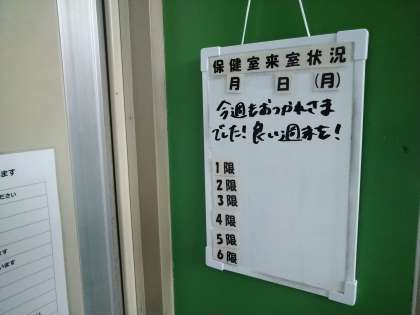 保健室来室状況
月 日 (月)
今週もおつかれさま
でした！良い週末を！
1限
2限
3限
4限
5限
6限
ます
ださい
ます
います